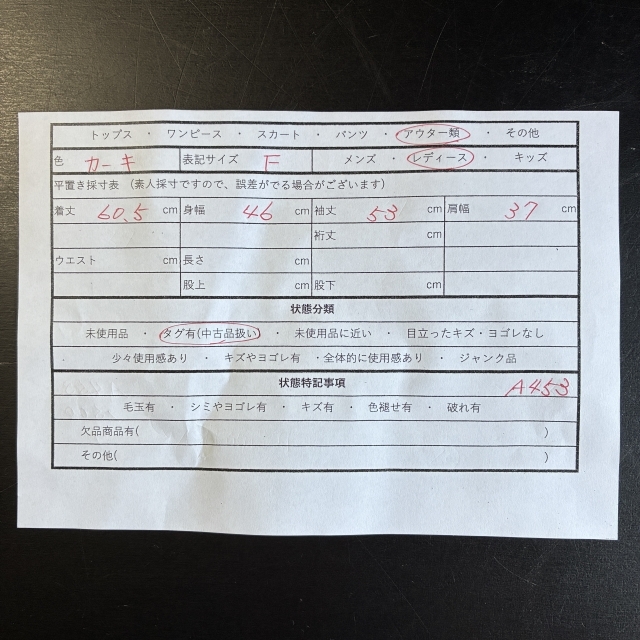 トップス ・ ワンピース ・ スカート ・ パンツ ・ アウター類 ・ その他
色 カーキ 表記サイズ F メンズ ・ レディース ・ キッズ
平置き採寸表 （素人採寸ですので、誤差がでる場合がございます）
着丈 60.5 cm 身幅 46 cm 袖丈 53 cm 肩幅 37 cm
裄丈 cm
ウエスト cm 長さ cm
股上 cm 股下 cm
状態分類
未使用品 ・ タグ有(中古品扱い) ・ 未使用品に近い ・ 目立ったキズ・ヨゴレなし
少々使用感あり ・ キズやヨゴレ有 ・全体的に使用感あり ・ ジャンク品
状態特記事項 A453
毛玉有 ・ シミやヨゴレ有 ・ キズ有 ・ 色褪せ有 ・ 破れ有
欠品商品有( )
その他( )